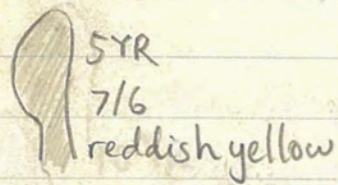 5YR
7/6
reddish yellow